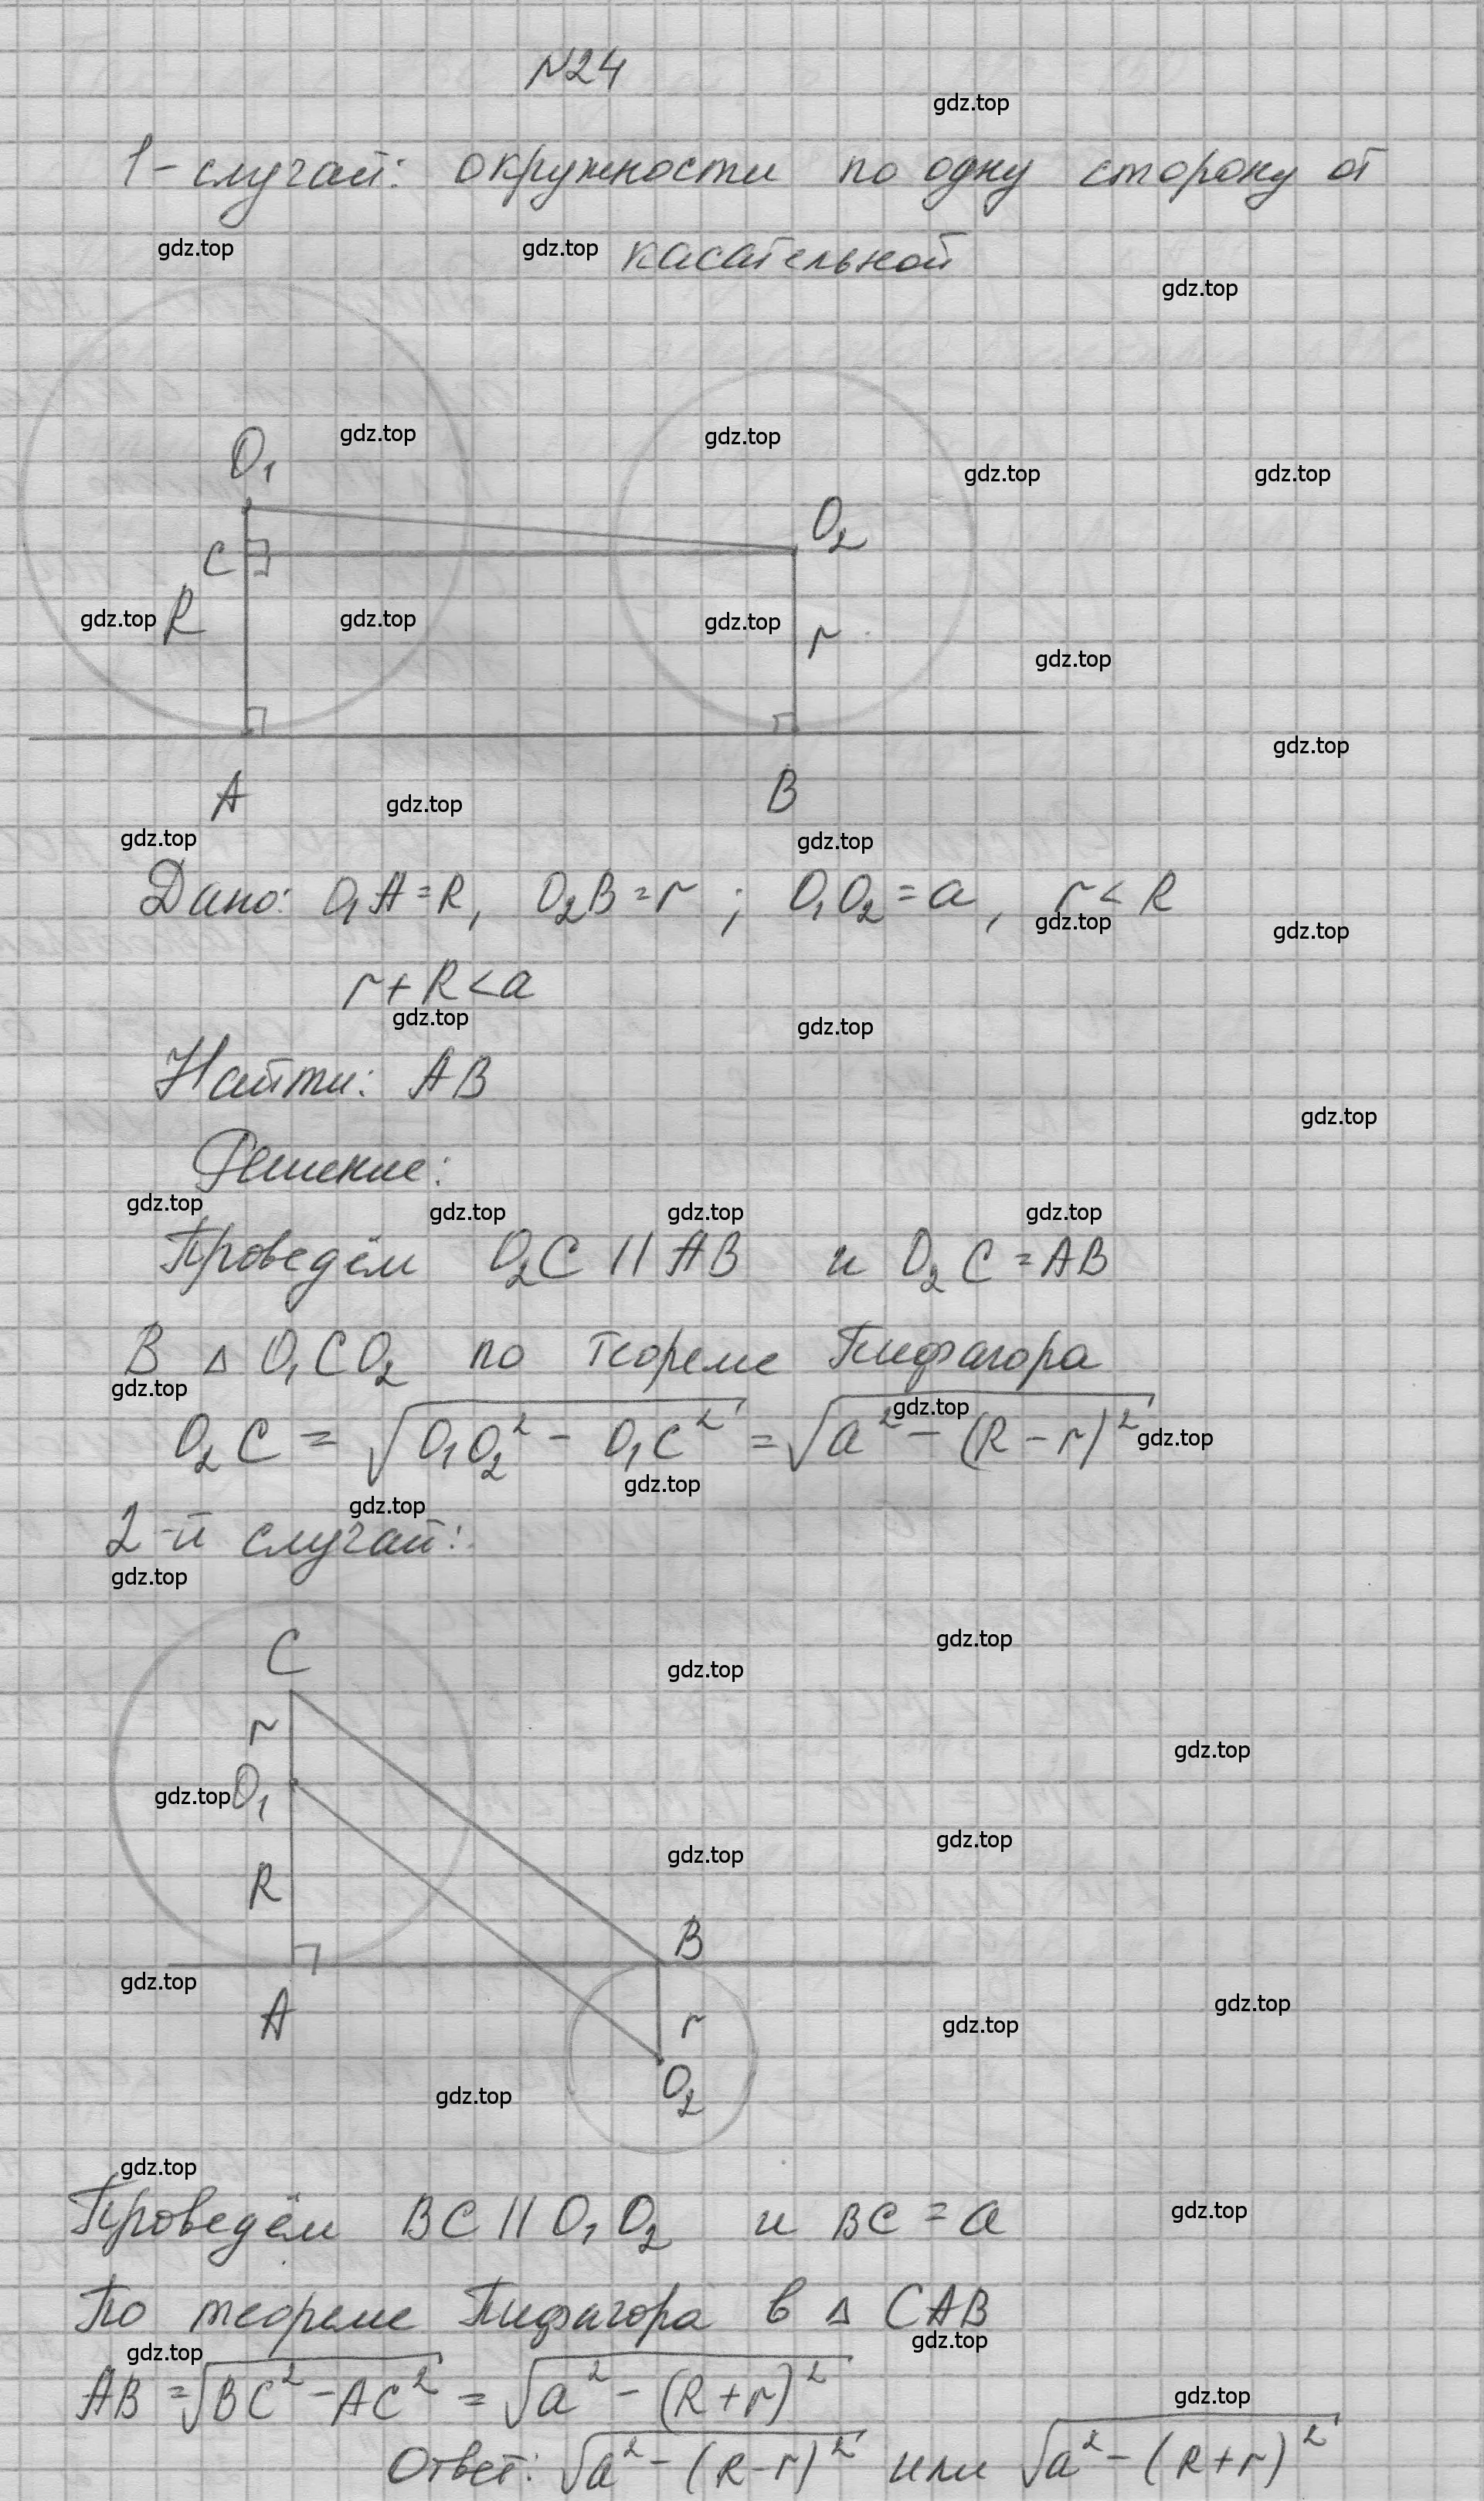 №24
gdz.top
1-случай: окружности по одну сторону от
gdz.top gdz.top касательной
gdz.top
O₁ gdz.top gdz.top
gdz.top gdz.top
O₂
C
gdz.top R gdz.top gdz.top r
gdz.top
gdz.top
A gdz.top B
gdz.top gdz.top
Дано: O₁A=R, O₂B=r; O₁O₂=a, r<R
gdz.top gdz.top
r+R<a
gdz.top gdz.top
Найти: AB
gdz.top
Решение:
gdz.top gdz.top gdz.top gdz.top
Проведём O₂C || AB и O₂C=AB
В Δ O₁CO₂ по теореме Пифагора
gdz.top gdz.top
O₂C = √(O₁O₂² - O₁C²) = √(a² - (R-r)²) gdz.top
gdz.top gdz.top
2-й случай:
gdz.top
C gdz.top
gdz.top
r gdz.top
gdz.top O₁
gdz.top gdz.top
R
B
gdz.top
A r gdz.top gdz.top
O₂
gdz.top
gdz.top
Проведём BC || O₁O₂ и BC = a gdz.top
По теореме Пифагора в Δ CAB
gdz.top gdz.top
AB = √(BC² - AC²) = √(a² - (R+r)²) gdz.top
Ответ: √(a² - (R-r)²) или √(a² - (R+r)²)